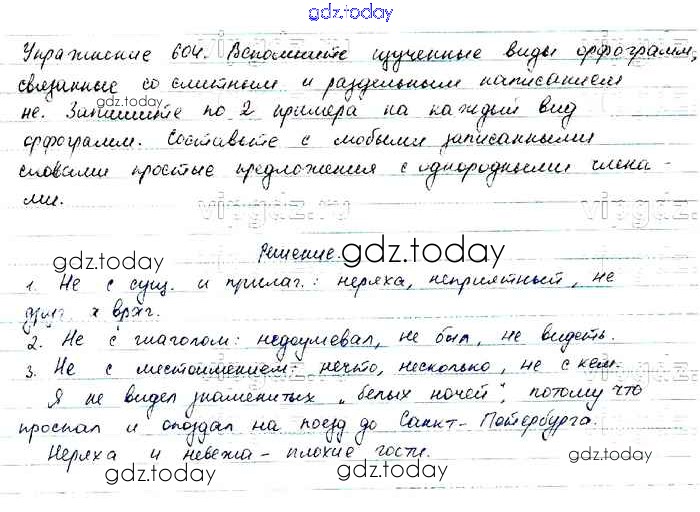 gdz.today
Упражнение 604. Вспомните изученные виды орфограмм,
связанные со слитным и раздельным написанием
gdz.today gdz.today
не. Запишите по 2 примера на каждый вид
орфограмм. Составьте с любыми записанными
словами простые предложения с однородными члена-
ми.
vipgdz.ru vipgdz.ru
Решение. gdz.today
1. Не с сущ. и прилаг.: неряха, неприятный, не
друг, а враг.
2. Не с глаголом: недоумевал, не был, не видеть.
3. Не с местоимением: нечто, несколько, не с кем.
Я не видел знаменитых „белых ночей", потому что
проспал и опоздал на поезд до Санкт-Петербурга.
gdz.today
Неряха и невежа - плохие гости.
gdz.today gdz.today